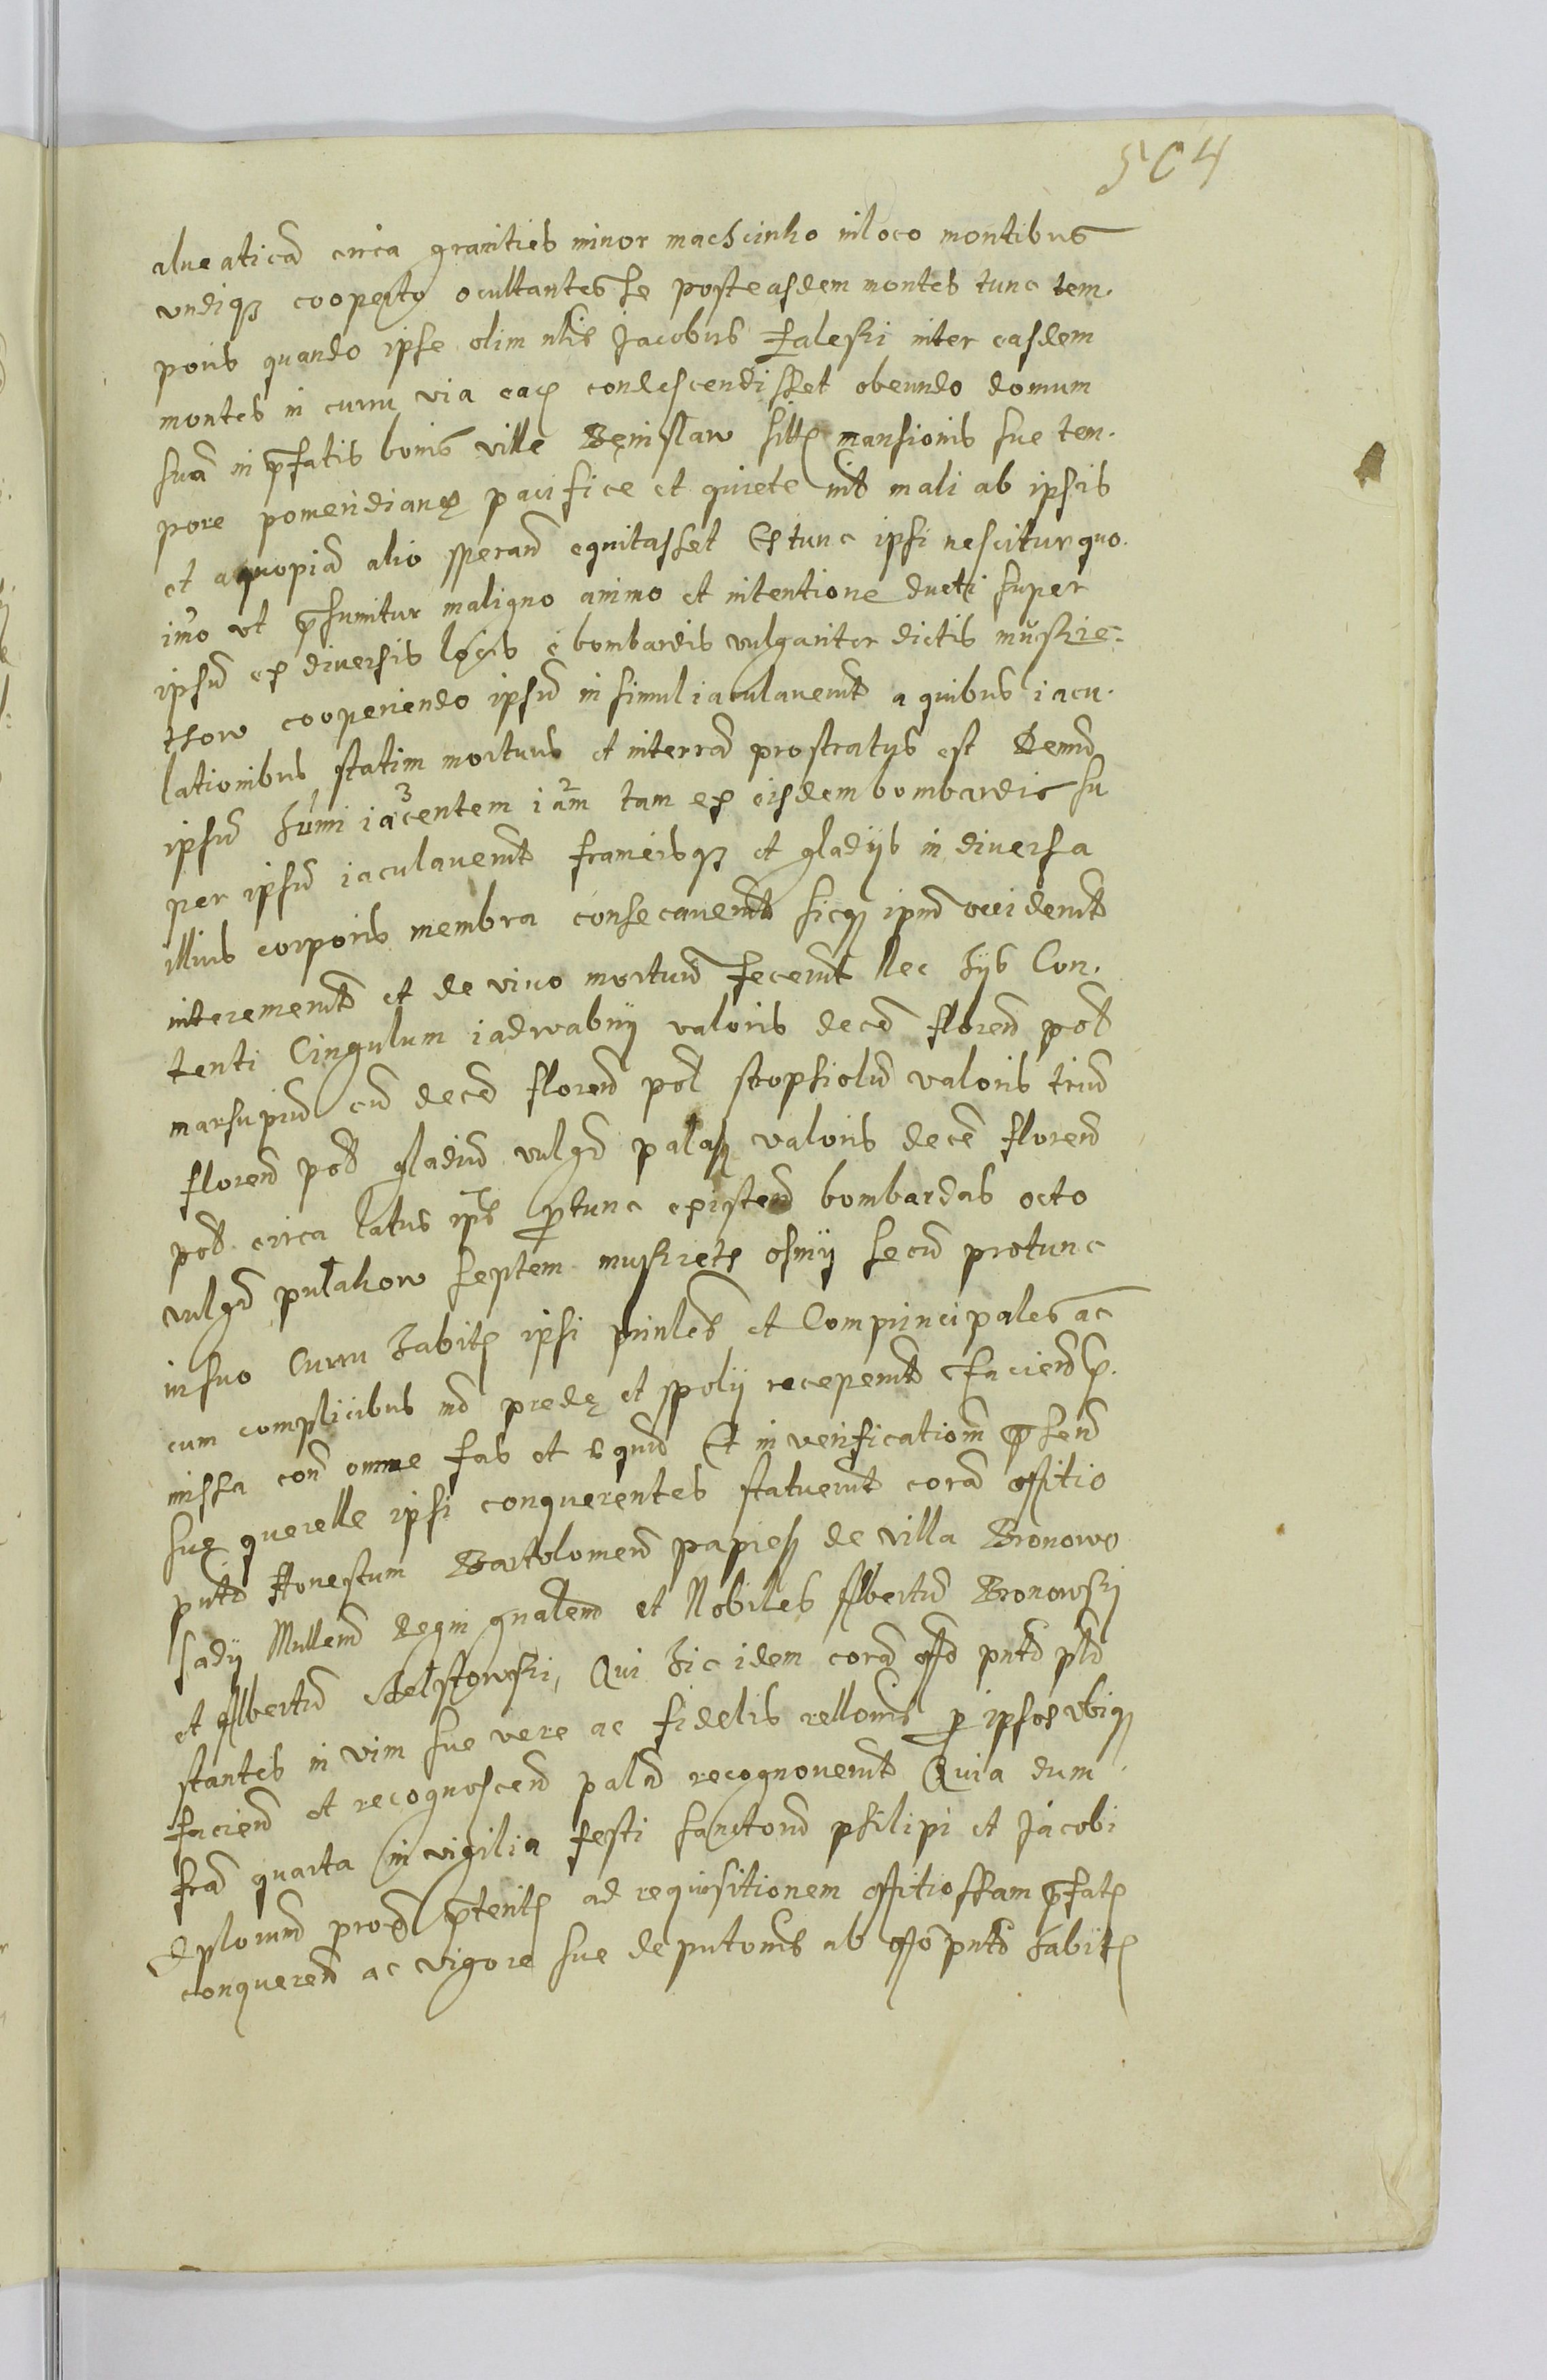 504
alueaticā circa granities minor machcinko in loco montibus
vndiqȝ cooperto ocultantes se post easdem montes tunc tem.
poris quando ipse olim nlis Jacobus Zaleski inter easdem
montes in curru via eaꝫ condescendisset obeundo domum
suā in p̄fatis bonis ville Bęnislaw sittꝫ mansionis sue tem.
pore pomeridianę pacifice et quiete nil mali ab ipsis
et a quopiā alio sperand equitasset Extunc ipsi nescitur quo.
imo vt p̄sumitur maligno animo et intentione ducti super
ipsū ex diuersis locis é bombardis vulgariter dictis muskie=
thow cooperiendo ipsū in simul iaculauerunt a quibus iacu.
lationibus statim mortuus et in terrā prostratus est Demū
ipsū humi iacentem iam tam ex eisdem bombardis su
per ipsū iaculauerunt frameisqȝ et gladijs in diuersa
illius corporis membra consecauerunt sicqȝ ipm occiderunt
interemerunt et de viuo mortuū fecerunt Nec hijs Con.
tenti Cingulum iadwabny valoris decē floren pol
marsupiū cū decē floren pol scopsiolū valoris triū
floren pol gladiū vulgo palaß valoris decē floren
pol circa latus ips p̄tunc existen bombardas octo
vulgo pulhakow septem muskieth osmy secū protunc
in suo Curru habitꝫ ipsi prinles et Comprincipales ac
cum complicibus md predę et spolij receperunt faciend p̄.
missa con omne fas et equū Et in verificationem p̄sen
suę querelle ipsi conquerentes statuerunt corā offitio
pntd Honestum Bartolomeū papieß de villa Bronowo
sady Mllem Regni gnalem et Nobiles Albertū Bronowski
et Albertū Chelstowski, Qui hic idem corā offo pntd pl̄r
stantes in vim sue vere ac fidelis rellonis p̄ ipsos vbiqȝ
faciend et recognoscend palā recognouerunt Quia dum
fria quarta in vigilia festi sanctorū philipi et Jacobi
Aplorum prox p̄teritꝫ ad requisitionem offitiosam p̄fatꝫ
conqueren ac vigore sue deputonis ab offo pntd habitꝫ